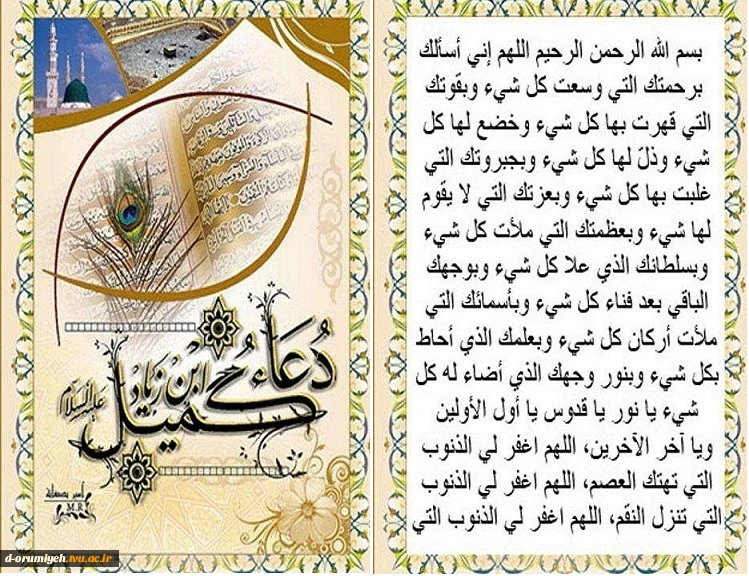 دُعَاء كُمَيل ابْنِ زِيَاد
عليه السلام
M.R
d-orumiyeh.tvu.ac.ir
بسم الله الرحمن الرحيم اللهم إني أسألك
برحمتك التي وسعت كل شيء وبقوتك
التي قهرت بها كل شيء وخضع لها كل
شيء وذلّ لها كل شيء وبجبروتك التي
غلبت بها كل شيء وبعزتك التي لا يقوم
لها شيء وبعظمتك التي ملأت كل شيء
وبسلطانك الذي علا كل شيء وبوجهك
الباقي بعد فناء كل شيء وبأسمائك التي
ملأت أركان كل شيء وبعلمك الذي أحاط
بكل شيء وبنور وجهك الذي أضاء له كل
شيء يا نور يا قدوس يا أول الأولين
ويا آخر الآخرين، اللهم اغفر لي الذنوب
التي تهتك العصم، اللهم اغفر لي الذنوب
التي تنزل النقم، اللهم اغفر لي الذنوب التي